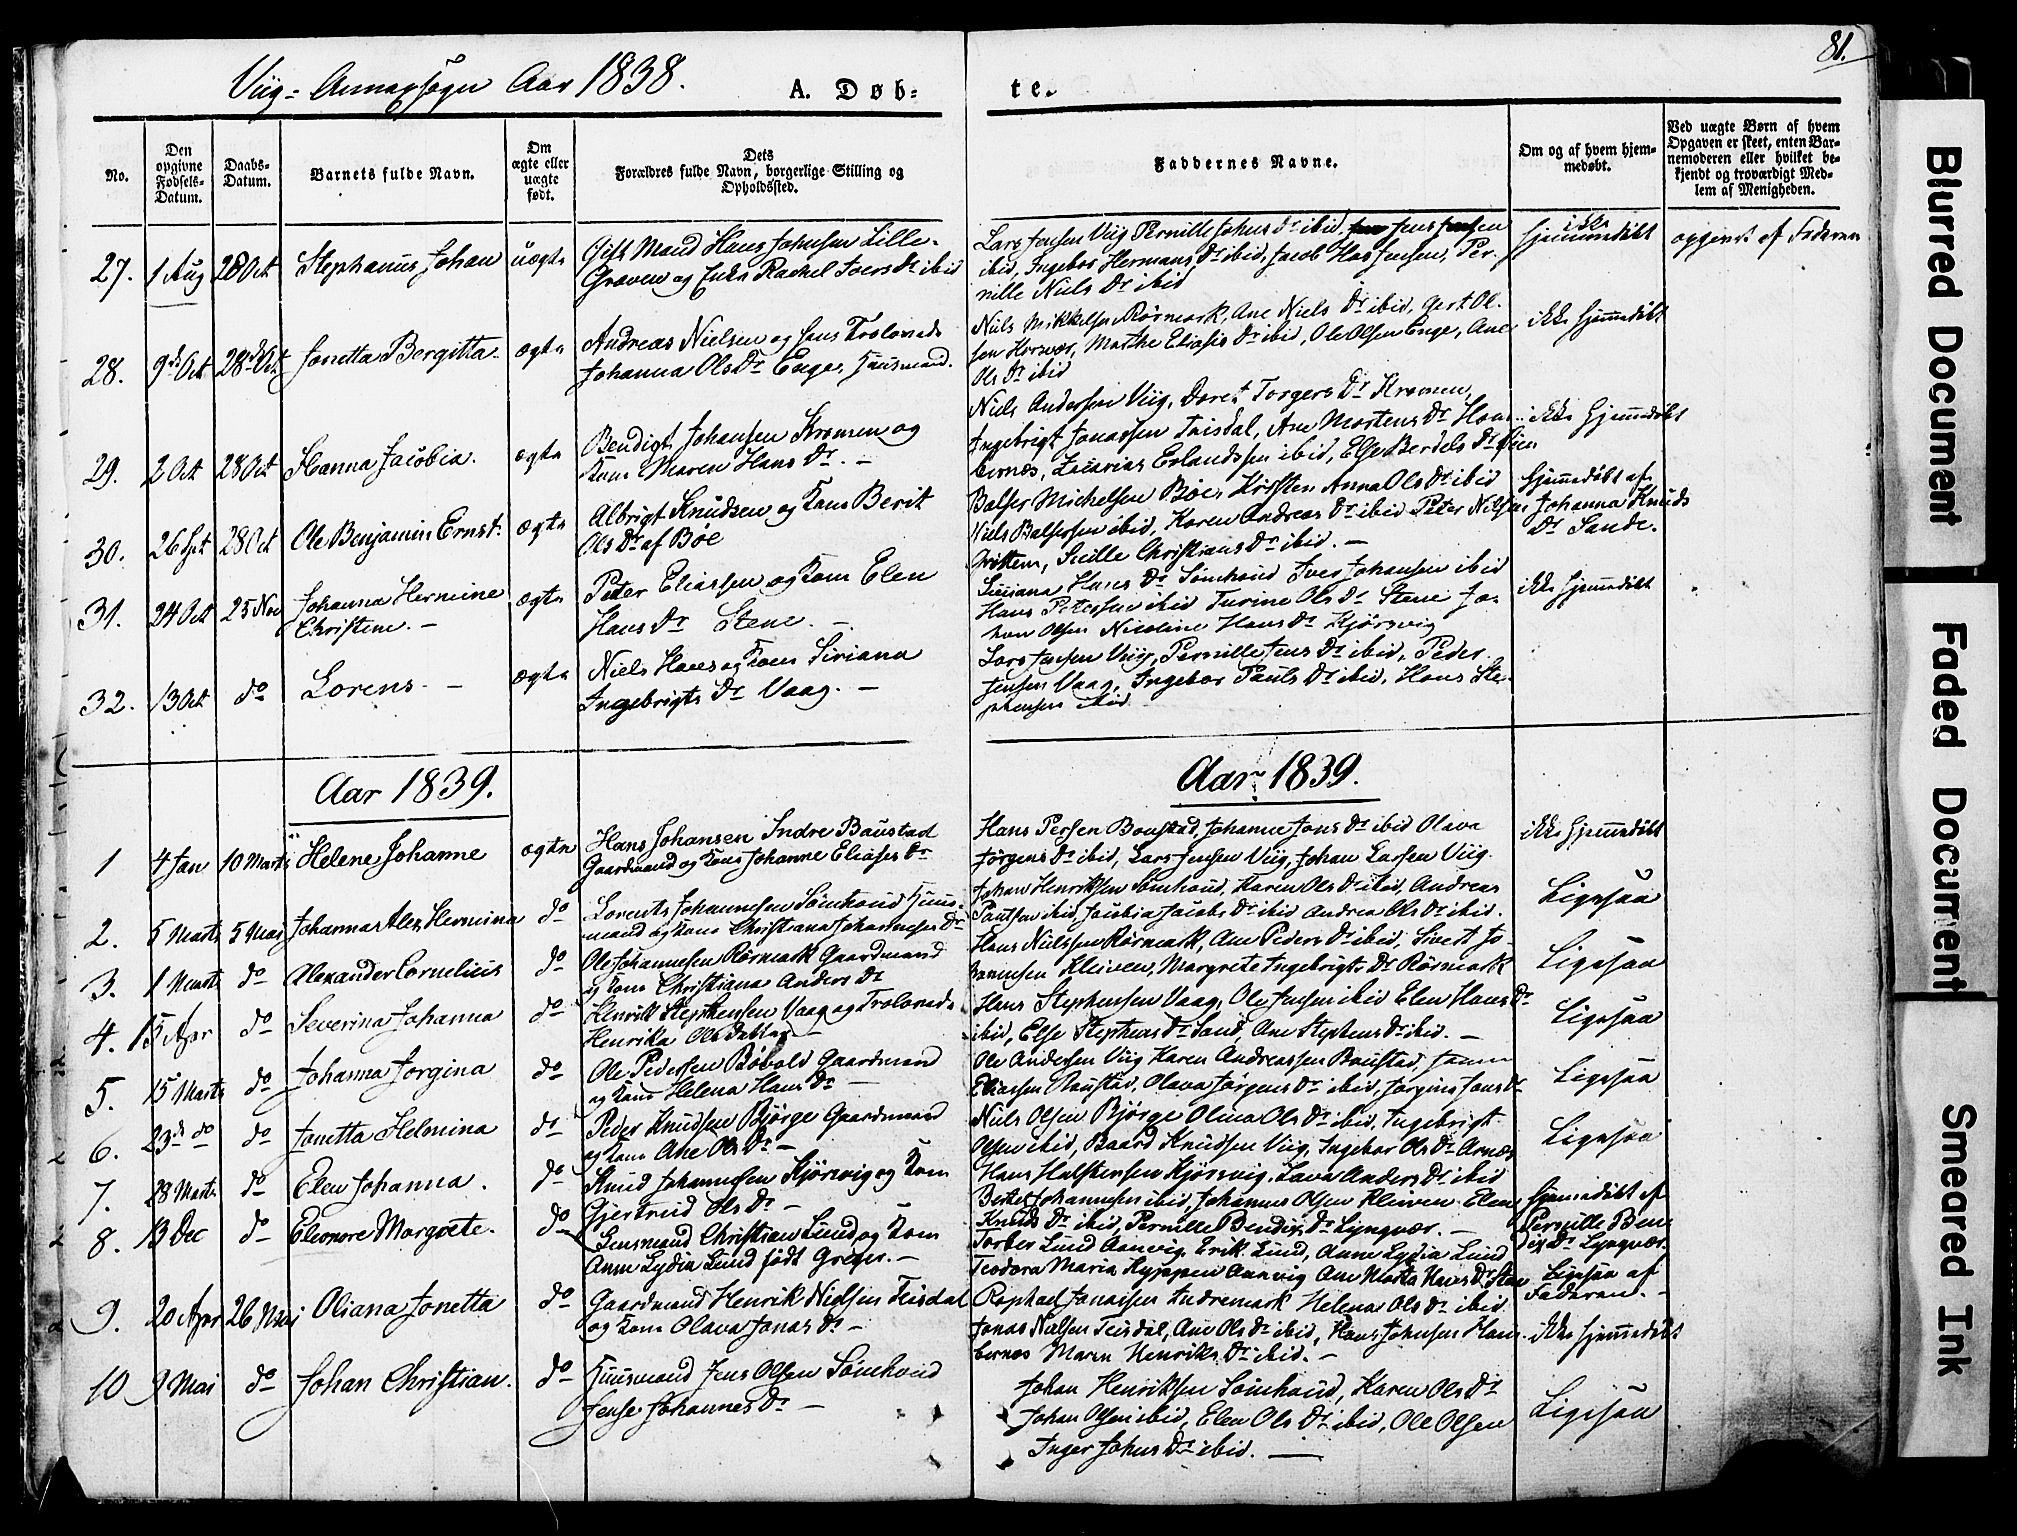 81.
Viig- Annexsogn Aar 1838.
A. Døb-
te.
No.
Den opgivne Fødsels-Datum.
Daabs-Datum.
Barnets fulde Navn.
Om ægte eller uægte født.
Dets Forældres fulde Navn, borgerlige Stilling og Opholdssted.
Faddernes Navne.
Om og af hvem hjemmedøbt.
Ved uægte Børn af hvem Opgaven er skeet, enten Barnemoderen eller hvilket bekjendt og troværdigt Medlem af Menigheden.
27. 1 Aug 28 Oct Stephanus Johan uægte
Gift Mand Hans Johnsen Lille-
Graven og Enke Rackel Iversdr ibid
Lars Jensen Viig Pernille Johns Dr ibid, Jens Jensen
ibid, Ingebor Hermans Dr ibid, Jacob Jensen, Per-
nille Niels Dr ibid
ikke hjemmedøbt
opgivet af Faderen
28. 9de Oct 28de Oct Jonetta Bergitta. ægte
Andreas Nielsen og hans Trolovede
Johanna Ols Dr Enge, Huusmand.
Niels Mikkelsen Rørmark, Ane Niels Dr ibid, Gert Ol-
sen Hornær, Marthe Eliasis Dr ibid, Ole Olsen Enge, Ane
Ols Dr ibid
ikke hjemmedøbt
29. 2 Oct 28 Oct Hanna Jacobia. ægte
Bendigt Johansen Kromen og
Kone Maren Hans Dr. -
Niels Andersen Viig, Doret Torgers Dr Kromen,
Ingebrigt Jonassen Teisdal, Ane Mortens Dr Hau-
bernæs, Zacarias Erlandsen ibid, Else Berdels Dr
ikke hjemmedøbt
30. 26 Spt 28 Oct Ole Benjamin Ernst. ægte
Albrigt Knudsen og Kone Berit
Ols Dr af Bøe
Balser Michelsen Bøe, Kristen Anna Ols Dr ibid
Niels Balsersen ibid, Karen Andreas Dr ibid Peter Nilsen
Sicille Christians Dr ibid. -
hjemmedøbt af
Johanna Knuds
Dr Sande.
31. 24 Oct 25 Nov Johanna Hermine
Christine. - ægte
Peter Eliassen og Kone Elen
Hans Dr Stene. -
Siciana Hans Dr Sømhoud Iver Johansen ibid
Hans Petersen ibid Turine Ols Dr Stene Jo-
han Olsen Nicoline Hans Dr Kjørsvig
ikke hjemmedøbt
32. 13 Oct do Lorens. - ægte
Niels Hans og Kone Siriana
Ingebrigts Dr Vaag. -
Lars Jensen Viig, Pernille Jens Dr ibid, Peder
Jensen Vaag, Ingebor Pauls Dr ibid, Hans Ste-
phensen ibid
Aar 1839.
Aar 1839.
1 4 Jan 10 Marts Helene Johanne ægte
Hans Johansen Indre Baustad
Gaardmand og Kone Johanne Eliases Dr
Hans Persen Boustad, Johanne Jons Dr ibid Olava
Jørgens Dr ibid, Lars Jensen Viig, Johan Larsen Viig.
ikke hjemmedøbt
2. 5 Marts 5 Mai Johanna Alex Hermina do
Lorents Johannesen Sømhoud Huus-
mand og Kone Christiana Johannesse Dr
Johan Henriksen Sømhoud, Karen Ols Dr ibid, Andreas
Paulsen ibid, Jacobia Jacobs Dr ibid Andrea Ols Dr ibid.
Ligesaa
3. 1 Marts do Alexander Cornelius do
Ole Johannesen Rørmark Gaardmand
og Kone Christiana Anders Dr
Hans Nielssen Rørmark, Ane Peders Dr ibid, Sivert Jo-
hannesen Kleiven, Margrete Ingebrigts Dr Rørmark
Ligesaa
4. 15 Apr do Severina Johanna do
Henrik Stephensen Vaag og Trolovede
Henrika Ols Datter
Hans Stephensen Vaag, Ole Jensen ibid Elen Hans Dr
ibid, Else Stephens Dr Sand, Ane Stephens Dr ibid. -
Ligesaa
5. 15 Marts do Johanna Jorgina do
Ole Pedersen Bøbold Gaardmand
og Kone Helena Hans Dr -
Ole Andersen Viig Karen Andreassen Boustad,
Eliassen Baustad, Olava Jørgens Dr ibid, Jorgine Jons Dr
Ligesaa
6. 23de do do Jonetta Helmina do
Peder Knudsen Bjørge Gaardmand
og Kone Ane Ols Dr -
Niels Olsen Bjørge Olina Ols Dr ibid, Ingebrigt
Olsen ibid, Baard Knudsen Viig, Ingebor Ols Dr Arnæs
Ligesaa
7. 28 Marts do Elen Johanna. do
Knud Johannessen Kjørsvig og Kone
Gjertrud Ols Dr -
Hans Halstensen Kjørsvig, Lava Anders Dr ibid
Berhet Johannesen ibid, Johannes Olsen Kleiven Elen
Knuds Dr ibid, Pernille Bendix Dr Lyngvær. -
hjemmedøbt af
Pernille Ben-
dix Dr Lyngvær.
8. 13 Dec do Eleonore Margrete. do
Lensmand Christian Lund og Kone
Anne Lydia Lund født Greger. -
Torber Lund Aanvig, Erik Lund, Anne Lydia Lund
Teodora Maria Hyppen Aanvig Ane Marta Hans Dr Sten
Ligesaa af
Faderen. -
9. 20 Apr 26 Mai Oliana Jonetta do
Gaardmand Henrik Nielsen Teisdal
og Kone Olava Jonas Dr -
Raphael Jonassen Indremark Helena Ols Dr ibid
Jonas Nielsen Teisdal, Ane Ols Dr ibid, Hans Johnsen Hau-
bernæs Maren Henriks Dr ibid. -
ikke hjemmedøbt
10 9 Mai do Johan Christian. do
Huusmand Jens Olsen Sømhoud
Jense Johannes Dr -
Johan Henriksen Sømhoud, Karen Ols Dr
Johan Olsen ibid, Elen Ols Dr ibid, Ole Olsen
Inger Johns Dr ibid. -
Ligesaa
Blurred Document
Faded Document
Smeared Ink